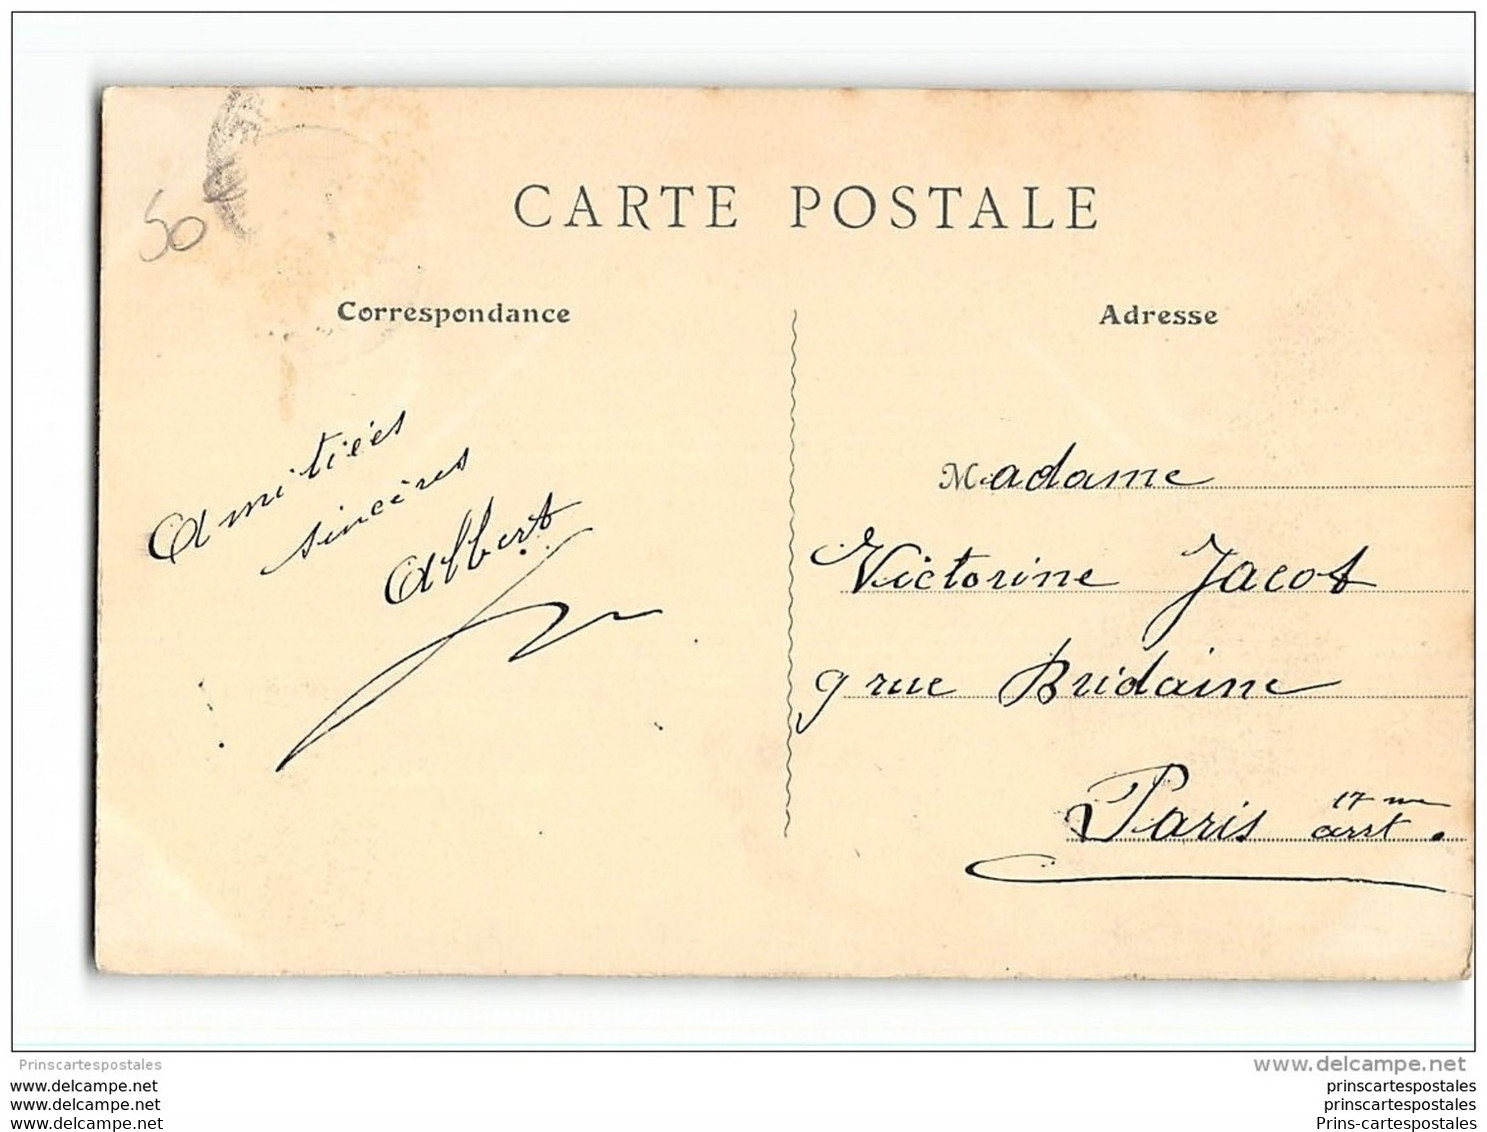 50
CARTE POSTALE
Correspondance
Adresse
Amitiées
sincères
Albert
Madame
Victorine Jacot
9 rue Bridaine
Paris 17me arrt.
Prinscartespostales
www.delcampe.net
www.delcampe.net
www.delcampe.net
www.delcampe.net
prinscartespostales
prinscartespostales
Prins-cartespostales